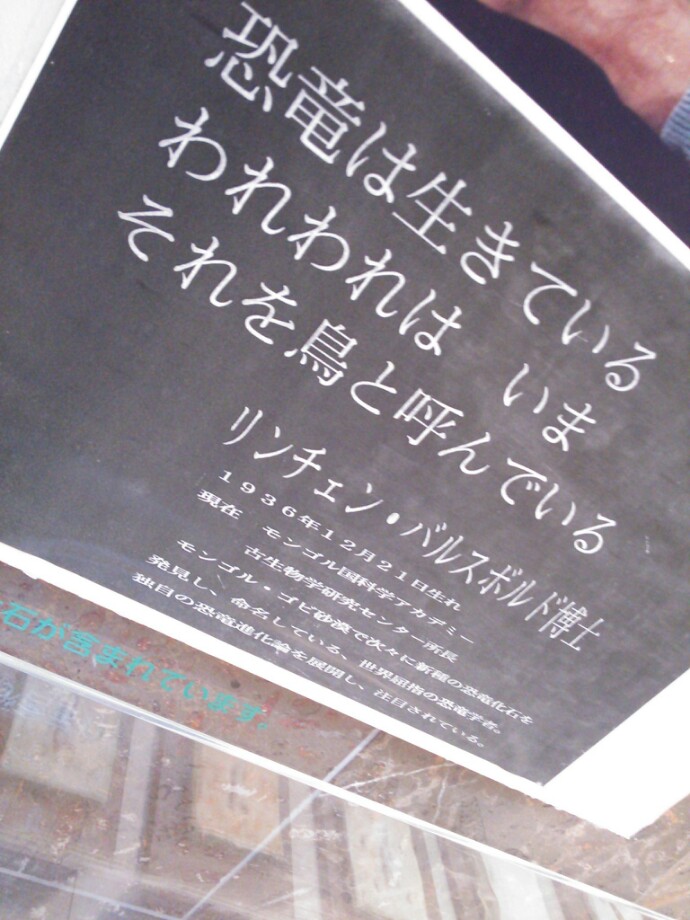 恐竜は生きている
われわれは　いま
それを鳥と呼んでいる
リンチェン・バルスボルド博士
１９３６年１２月２１日生れ
現在　モンゴル国科学アカデミー
古生物学研究センター所長
モンゴル・ゴビ砂漠で次々に新種の恐竜化石を
発見し、命名している、世界屈指の恐竜学者。
独自の恐竜進化論を展開し、注目されている。
石が含まれています。